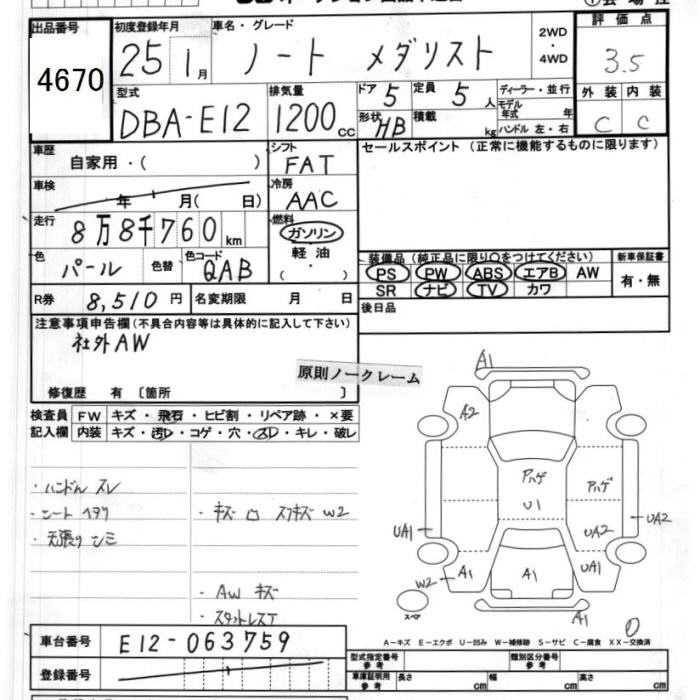 出品番号 初度登録年月 車名・グレード 2WD・4WD 評価点
4670 25 1月 ノート メダリスト 3.5
型式 排気量 ドア 5 定員 5人 ディーラー・並行 外装 内装
DBA-E12 1200cc 形状 HB 積載 kg モデル年式 年 ハンドル 左・右 C C
車歴 自家用・( ) シフト FAT セールスポイント (正常に機能するものに限ります)
車検 年 月( 日) 冷房 AAC
走行 8万8千760km 燃料 ガソリン 軽油 ・( )
色 パール 色替 色コード QAB
装備品 (純正品に限り○をつけてください) 新車保証書
PS PW ABS エアB AW 有・無
SR ナビ TV カワ
R券 8,510円 名変期限 月 日 後日品
注意事項申告欄(不具合内容等は具体的に記入して下さい)
社外AW
原則ノークレーム
修復歴 有 〔箇所 〕
検査員 FW キズ・飛石・ヒビ割・リペア跡・×要
記入欄 内装 キズ・汚レ・コゲ・穴・スレ・キレ・破レ
・ハンドル スレ
・シート ヘタリ
・天張り シミ
・キズ
W2
・AW キズ
・スタットレスT
A1
A2
アハゲ アハゲ
U1
UA1 UA2 UA2
W2 A1 A1 UA1
スペア A1
A-キズ E-エクボ U-凹み W-補修跡 S-サビ C-腐食 XX-交換済
車台番号 E12-063759
登録番号
型式指定番号 参考 類別区分番号 参考
車庫証明用 参考 長さ cm 幅 cm 高さ cm